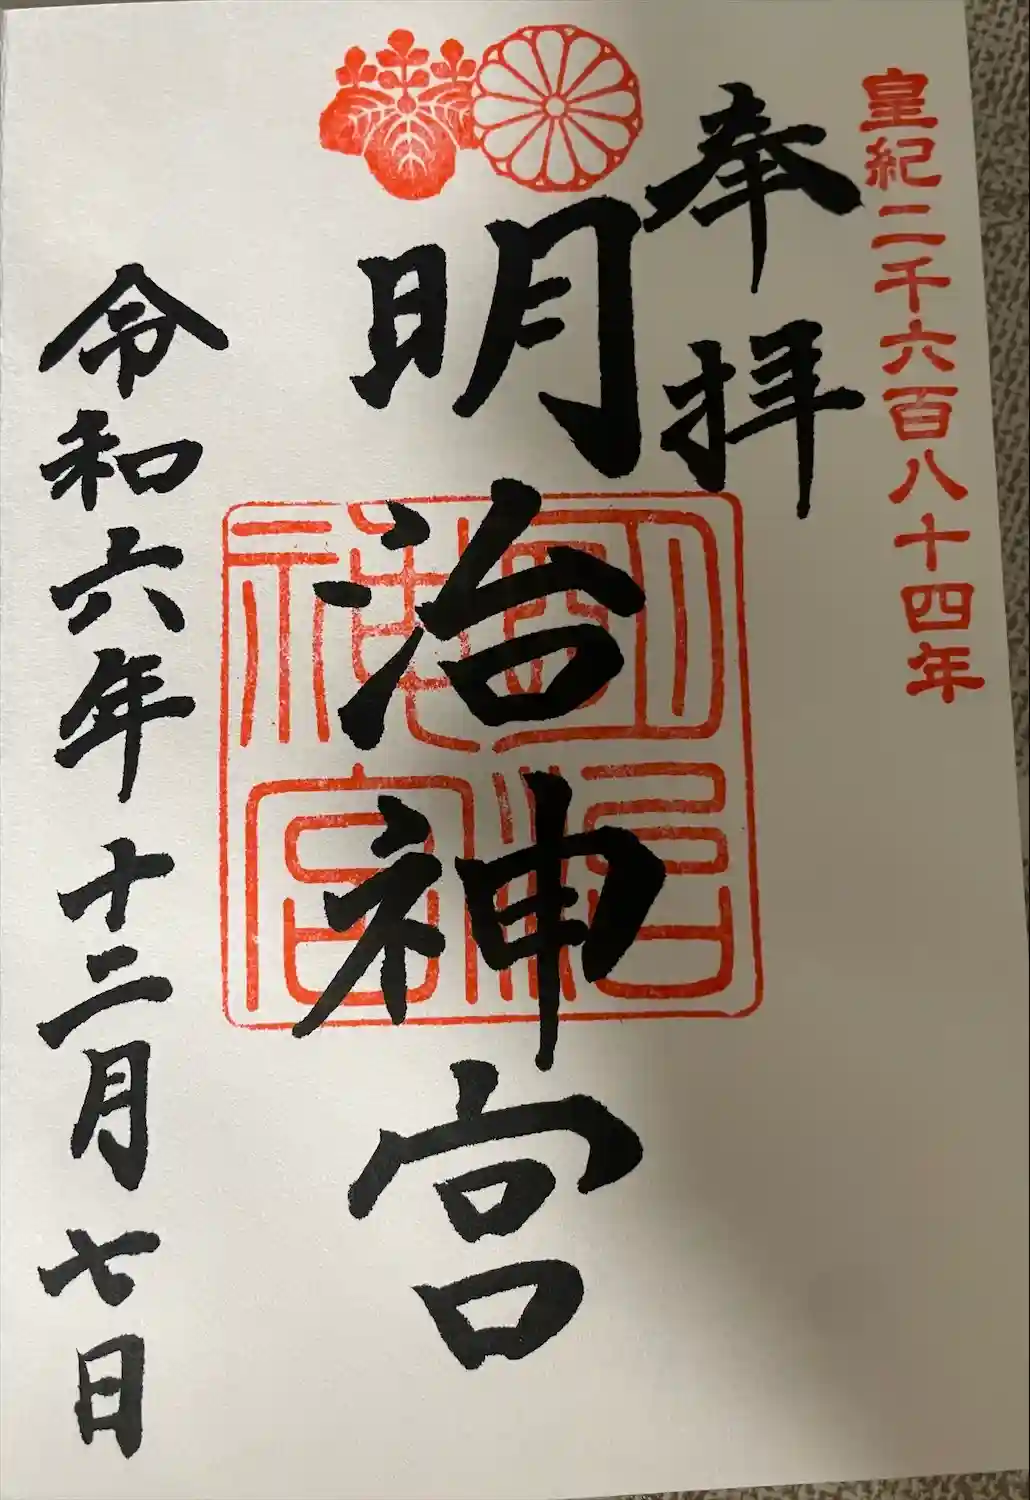 皇紀二千六百八十四年
奉拝
明治神宮
明治
神宮
令和六年十二月七日